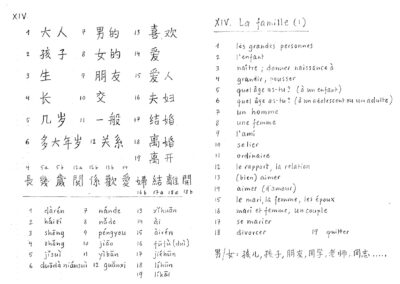 XIV.
1 大人 7 男的 13 喜欢
2 孩子 8 女的 14 爱
3 生 9 朋友 15 爱人
4 长 10 交 16 夫妇
5 几岁 11 一般 17 结婚
6 多大年岁 12 关系 18 离婚
19 离开
4 5a 5b 12a 12b 13b 14 16b 17a 18a 19b
長 幾 歲 關 係 歡 愛 婦 結 離 開
1 dàrén 7 nánde 13 xǐhuān
2 háizi 8 nǚde 14 ài
3 shēng 9 péngyou 15 àirén
4 zhǎng 10 jiāo 16 fūfù (duì)
5 jǐsuì 11 yìbān 17 jiéhūn
6 duōdàniánsuì 12 guānxi 18 líhūn
19 líkāi
XIV. La famille (1)
1 les grandes personnes
2 l'enfant
3 naître ; donner naissance à
4 grandir, pousser
5 quel âge as-tu? (à un enfant)
6 quel âge as-tu? (à un adolescent ou un adulte)
7 un homme
8 une femme
9 l'ami
10 se lier
11 ordinaire
12 le rapport, la relation
13 (bien) aimer
14 aimer (d'amour)
15 le mari, la femme, les époux
16 mari et femme, un couple
17 se marier
18 divorcer 19 quitter
男/女: 孩儿, 孩子, 朋友, 同学, 老师, 同志.....